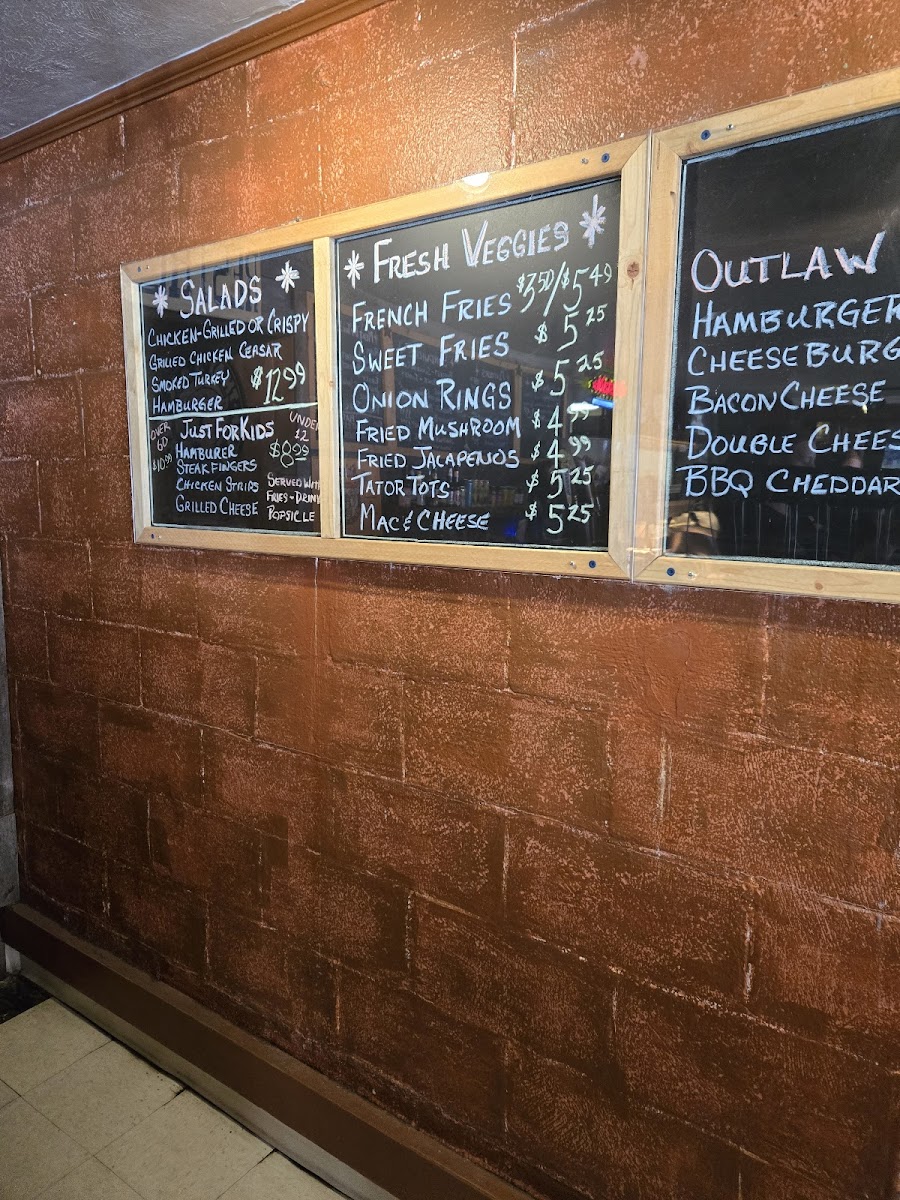 * SALADS *
CHICKEN-GRILLED OR CRISPY
GRILLED CHICKEN CEASAR
SMOKED TURKEY $12.99
HAMBURGER
OVER 60 $10.99
JUST FOR KIDS
UNDER 12
HAMBURER $8.99
STEAK FINGERS
CHICKEN STRIPS
GRILLED CHEESE
SERVED WITH
FRIES - DRINK
POPSICLE
* FRESH VEGGIES *
FRENCH FRIES $3.50/$5.49
SWEET FRIES $5.25
ONION RINGS $5.25
FRIED MUSHROOM $4.99
FRIED JALAPENOS $4.99
TATOR TOTS $5.25
MAC & CHEESE $5.25
OUTLAW
HAMBURGER
CHEESEBURG
BACON CHEESE
DOUBLE CHEES
BBQ CHEDDAR